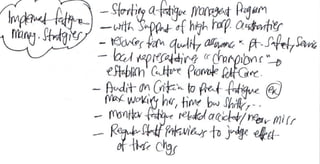 Implement fatigue
mang. Strategies
- Starting a fatigue managent Program
- with Support of high hosp. authorities
- resources from quality assurance - pt. Safety, Service
- local representating "champions" →
establish Culture Promote Self Care.
- Audit on Criteria to Prevent fatigue ex
max working hrs, time bw shifts...
- monitor fatigue related accidents/near miss
- Regular Staff interviews to judge effect
of these chgs